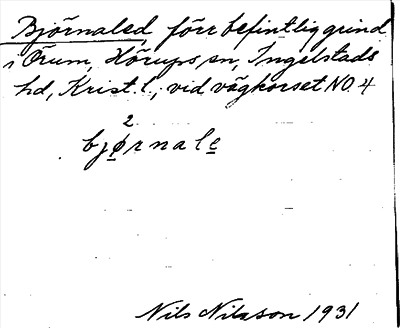 Björnaled, förr befintlig grind
i Örum, Hörups sn, Ingelstads
hd, Krist. l., vid vägkorset NO 4
2
bjørnale
Nils Nilsson 1931